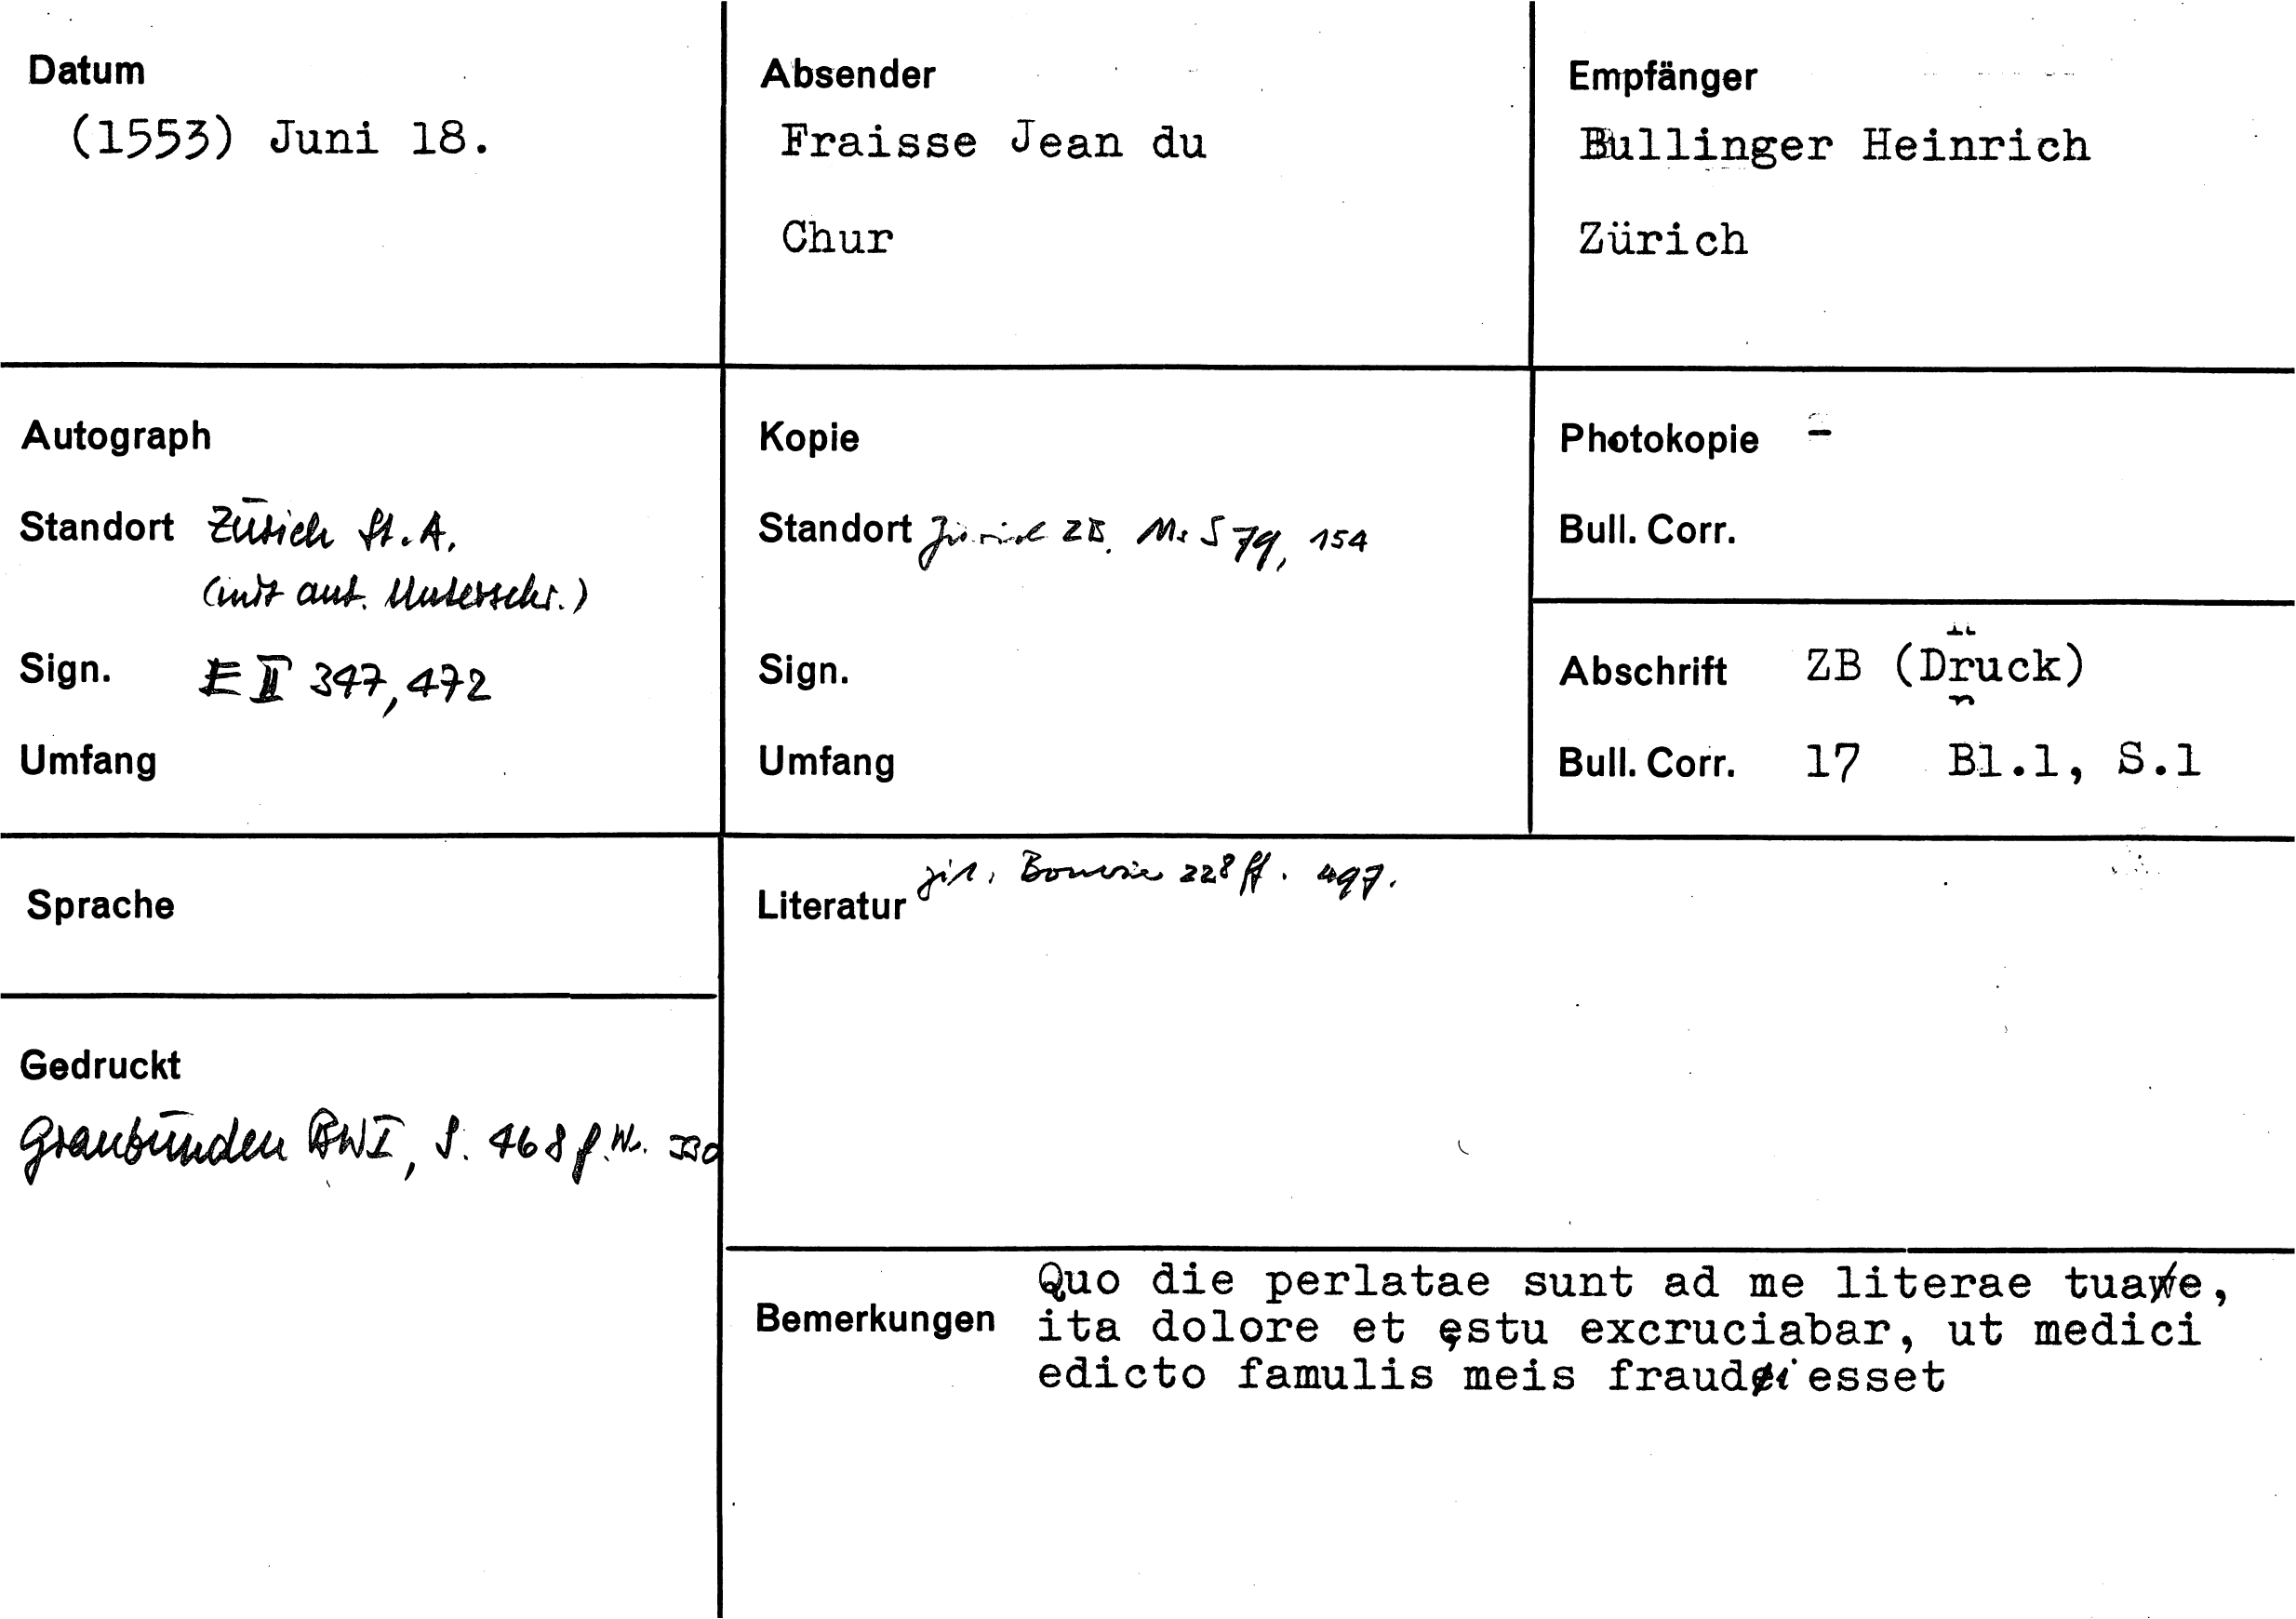 Datum
(1553) Juni 18.
Absender
Fraisse Jean du
Chur
Empfänger
Bullinger Heinrich
Zürich
Autograph
Standort Zürich St.A.
(mit aut. Unterschr.)
Sign. E II 347, 472
Umfang
Kopie
Standort Zürich ZB. Ms S 79, 154
Sign.
Umfang
Photokopie -
Bull. Corr.
Abschrift ZB (Druck)
Bull. Corr. 17 Bl.1, S.1
Sprache
Gedruckt
Graubünden BW I, S. 468 f. Nr. 330
Literatur zit. 228 ff. 497.
Bemerkungen
Quo die perlatae sunt ad me literae tuae,
ita dolore et ęstu excruciabar, ut medici
edicto famulis meis fraudi esset